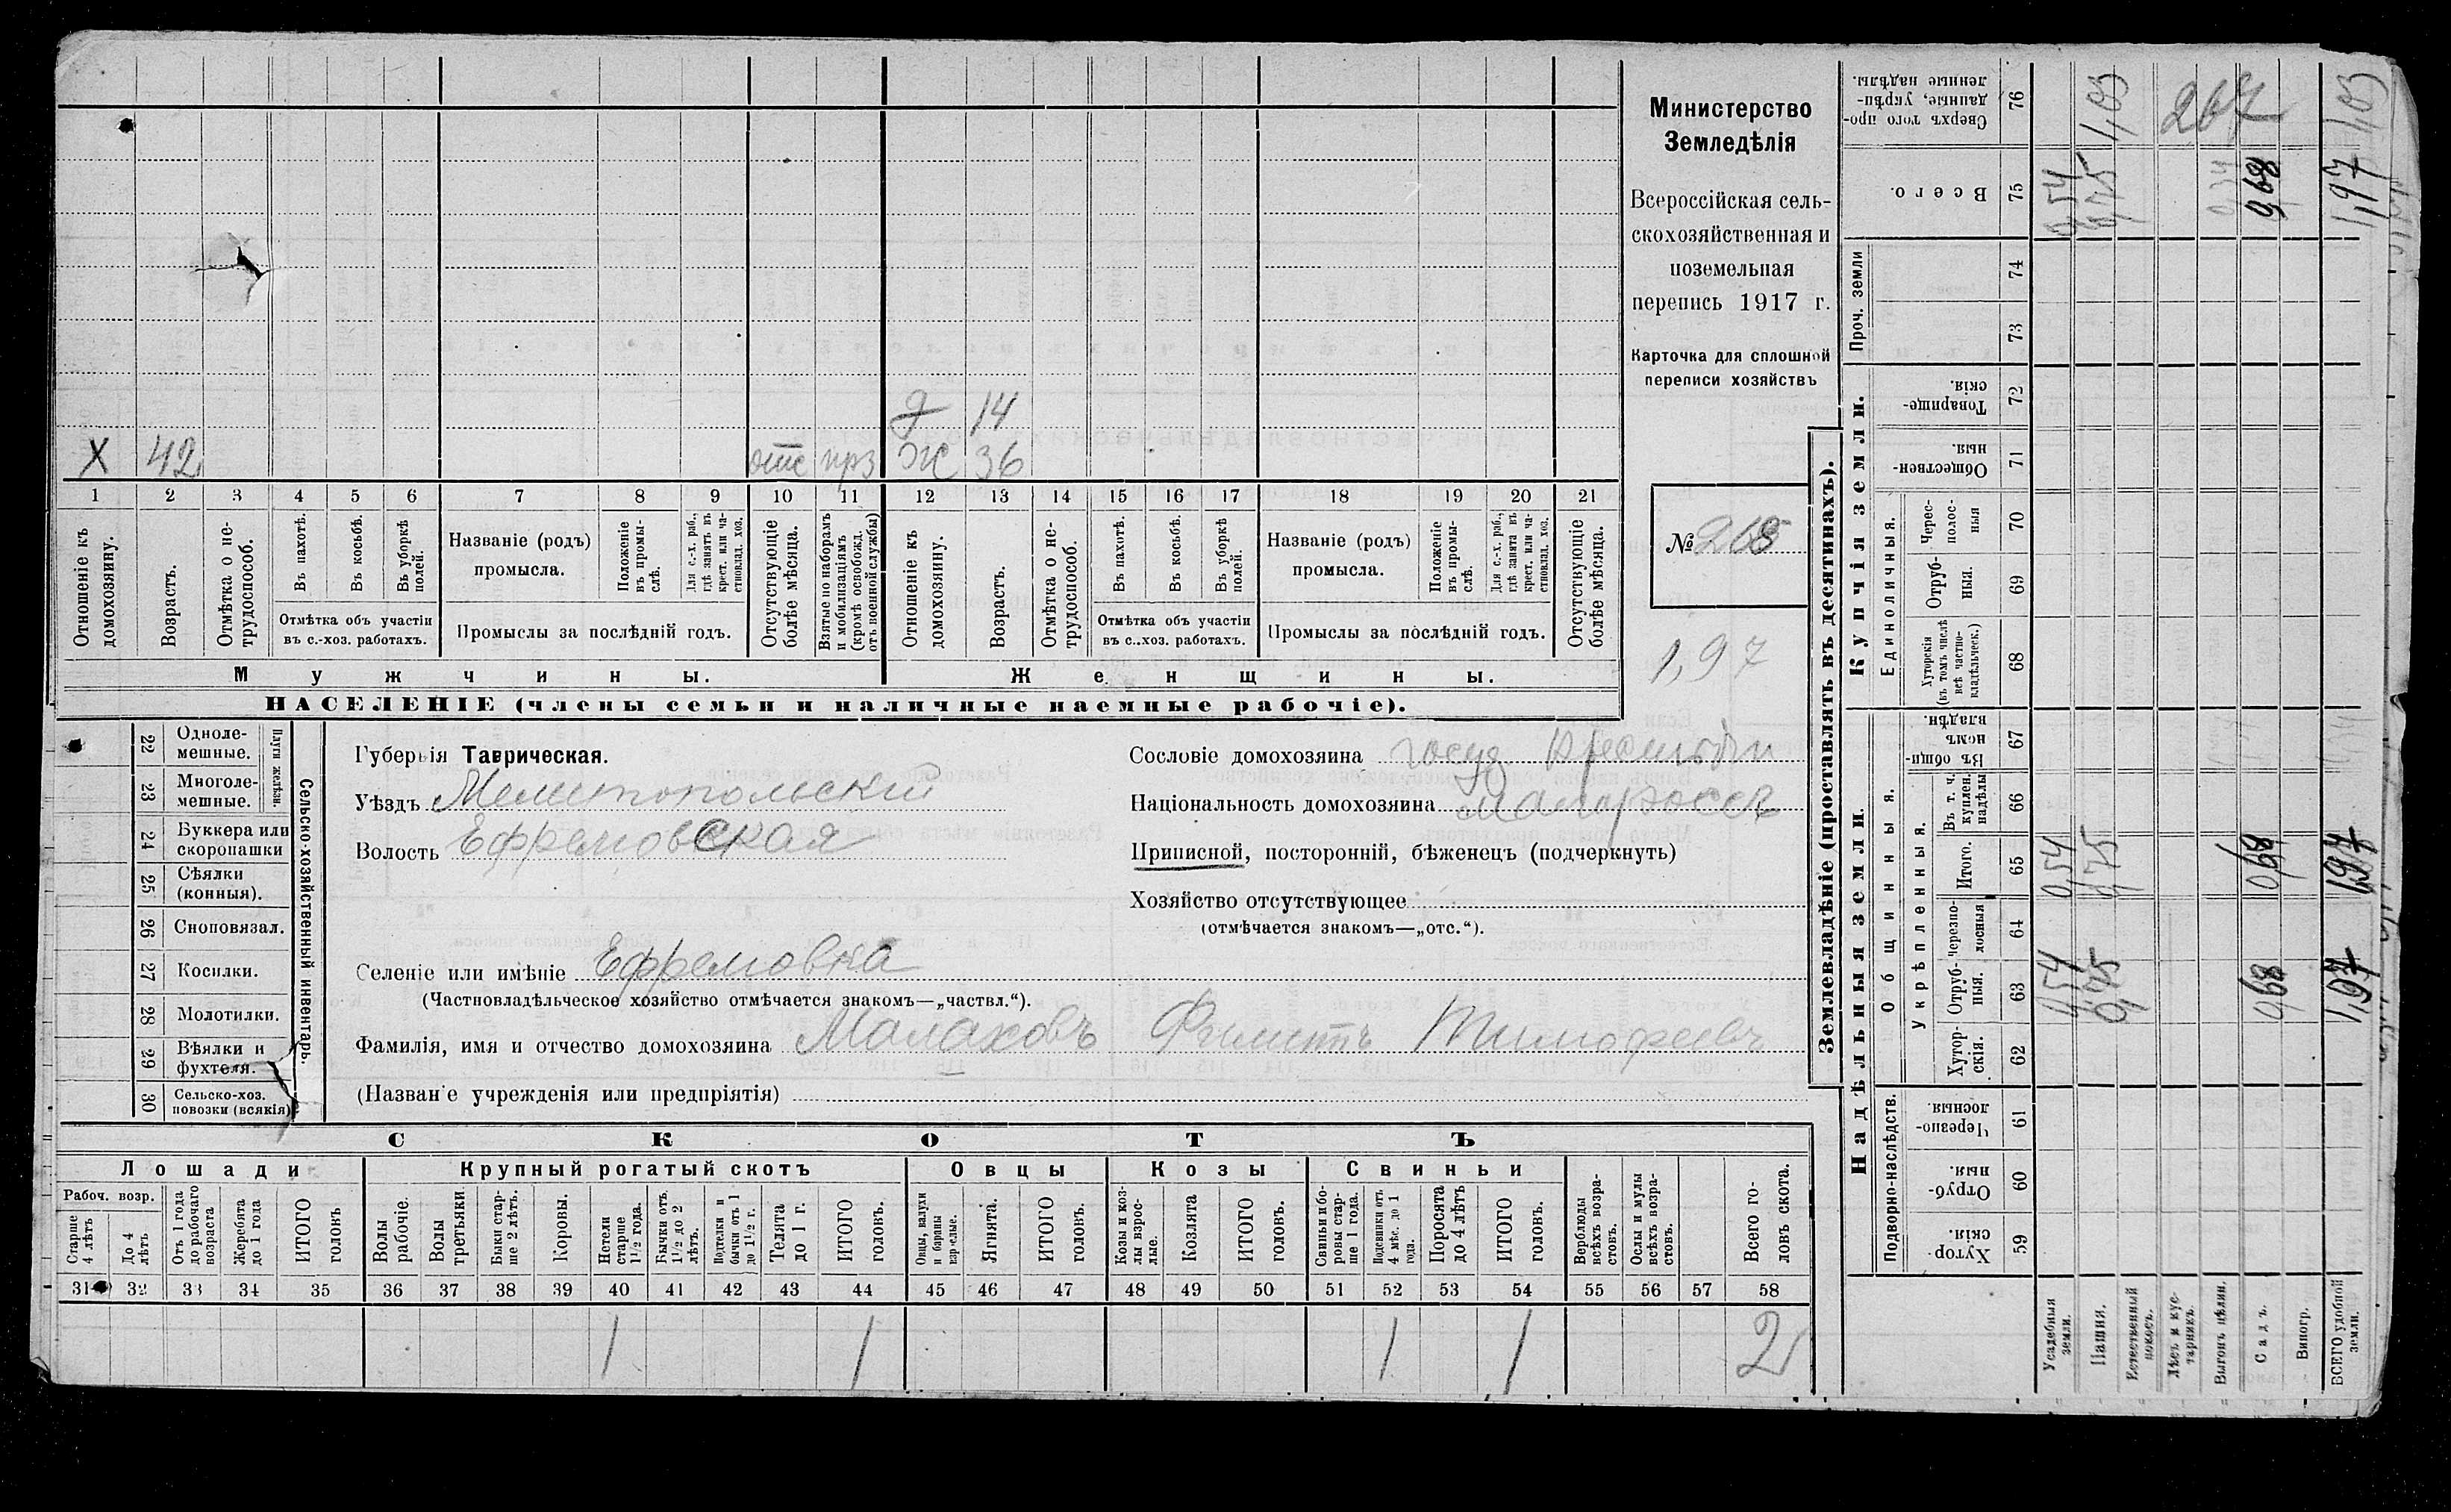 Министерство
Земледѣлія
Всероссійская сель-
скохозяйственная и
поземельная
перепись 1917 г.
Карточка для сплошной
переписи хозяйствъ
№ 268
1,97
д 14
Х 42 отс прз Ж 36
1 2 3 4 5 6 7 8 9 10 11 12 13 14 15 16 17 18 19 20 21
Отношеніе къ домохозяину.
Возрастъ.
Отмѣтка о не-трудоспособ.
Въ пахотѣ.
Въ косьбѣ.
Въ уборкѣ полей.
Отмѣтка объ участіи
въ с.-хоз. работахъ.
Названіе (родъ)
промысла.
Положеніе въ промы-слѣ.
Для с.-х. раб., гдѣ занятъ въ крест. или ча-стновлад. хоз.
Промыслы за послѣдній годъ.
Отсутствующіе болѣе мѣсяца.
Взятые по наборамъ и мобилизаціямъ (кромѣ освобожд. отъ военной службы)
Отношеніе къ домохозяину.
Возрастъ.
Отмѣтка о не-трудоспособ.
Въ пахотѣ.
Въ косьбѣ.
Въ уборкѣ полей.
Отмѣтка объ участіи
въ с.-хоз. работахъ.
Названіе (родъ)
промысла.
Положеніе въ промы-слѣ.
Для с.-х. раб., гдѣ занята въ крест. или ча-стновлад. хоз.
Промыслы за послѣдній годъ.
Отсутствующіе болѣе мѣсяца.
Мужчины. Женщины.
НАСЕЛЕНІЕ (члены семьи и наличные наемные рабочіе).
Сельско-хозяйственный инвентарь.
Плуги желѣзн.
22 Одноле-мешные.
23 Многоле-мешные.
24 Буккера или скоропашки
25 Сѣялки (конныя).
26 Сноповязал.
27 Косилки.
28 Молотилки.
29 Вѣялки и фухтеля.
30 Сельско-хоз. повозки (всякія)
Губернія Таврическая.
Уѣздъ Мелитопольскій
Волость Ефремовская
Селеніе или имѣніе Ефремовка
(Частновладѣльческое хозяйство отмѣчается знакомъ—„частвл.“).
Фамилія, имя и отчество домохозяина Малаховъ Филиппъ Тимофеевъ
(Названіе учрежденія или предпріятія)
Сословіе домохозяина госуд крестьян
Національность домохозяина малоросс
Приписной, посторонній, бѣженецъ (подчеркнуть)
Хозяйство отсутствующее
(отмѣчается знакомъ—„отс.“).
СКОТЪ
Лошади Крупный рогатый скотъ Овцы Козы Свиньи
Рабоч. возр.
Старше 4 лѣтъ
До 4 лѣтъ
Отъ 1 года до рабочаго возраста
Жеребята до 1 года
ИТОГО головъ
Волы рабочіе.
Волы третьяки
Быки стар-ше 2 лѣтъ.
Коровы.
Нетели старше 1½ года.
Бычки отъ 1½ до 2 лѣтъ.
Подтелки и бычки отъ 1 до 1½ г.
Телята до 1 г.
ИТОГО головъ.
Овцы, валухи и бараны взрослые.
Ягнята.
ИТОГО головъ.
Козы и коз-лы взрос-лые.
Козлята
ИТОГО головъ.
Свиньи и бо-ровы стар-ше 1 года.
Подсвинки отъ 4 мѣс. до 1 года.
Поросята до 4 лѣтъ
ИТОГО головъ.
Верблюды всѣхъ возра-стовъ.
Ослы и мулы всѣхъ возра-стовъ.
Всего го-ловъ скота.
31 32 33 34 35 36 37 38 39 40 41 42 43 44 45 46 47 48 49 50 51 52 53 54 55 56 57 58
1 1 1 1 2
Землевладѣніе (проставлять въ десятинахъ).
Надѣльныя земли. Купчія земли.
Подворно-наслѣдств.
Общинныя.
Укрѣпленныя.
Единоличныя.
Проч. земли
59 Хутор-скія.
60 Отруб-ныя.
61 Черезпо-лосныя.
62 Хутор-скія.
63 Отруб-ныя.
64 Черезпо-лосныя
65 Итого.
66 Въ т. ч. куплен. надѣлы
67 Въ общи-номъ владѣн.
68 Хуторскія (въ томъ числѣ всѣ частно-владѣльческ.)
69 Отруб-ныя.
70 Черес-полос-ныя
71 Обществен-ныя.
72 Товарище-скія.
73
74
75 Всего.
76 Сверхъ того про-данные, укрѣп-ленные надѣлы.
Усадебныя земли.
Пашня.
Естественный покосъ.
Лѣсъ и кус-тарникъ.
Выгонъ цѣлин.
Садъ.
Виногр.
ВСЕГО удобной земли.
0,54 0,54 0,54
0,75 0,75 0,75 1,03
267
0,68 0,68 0,68
1,97 1,97 1,97 1,03